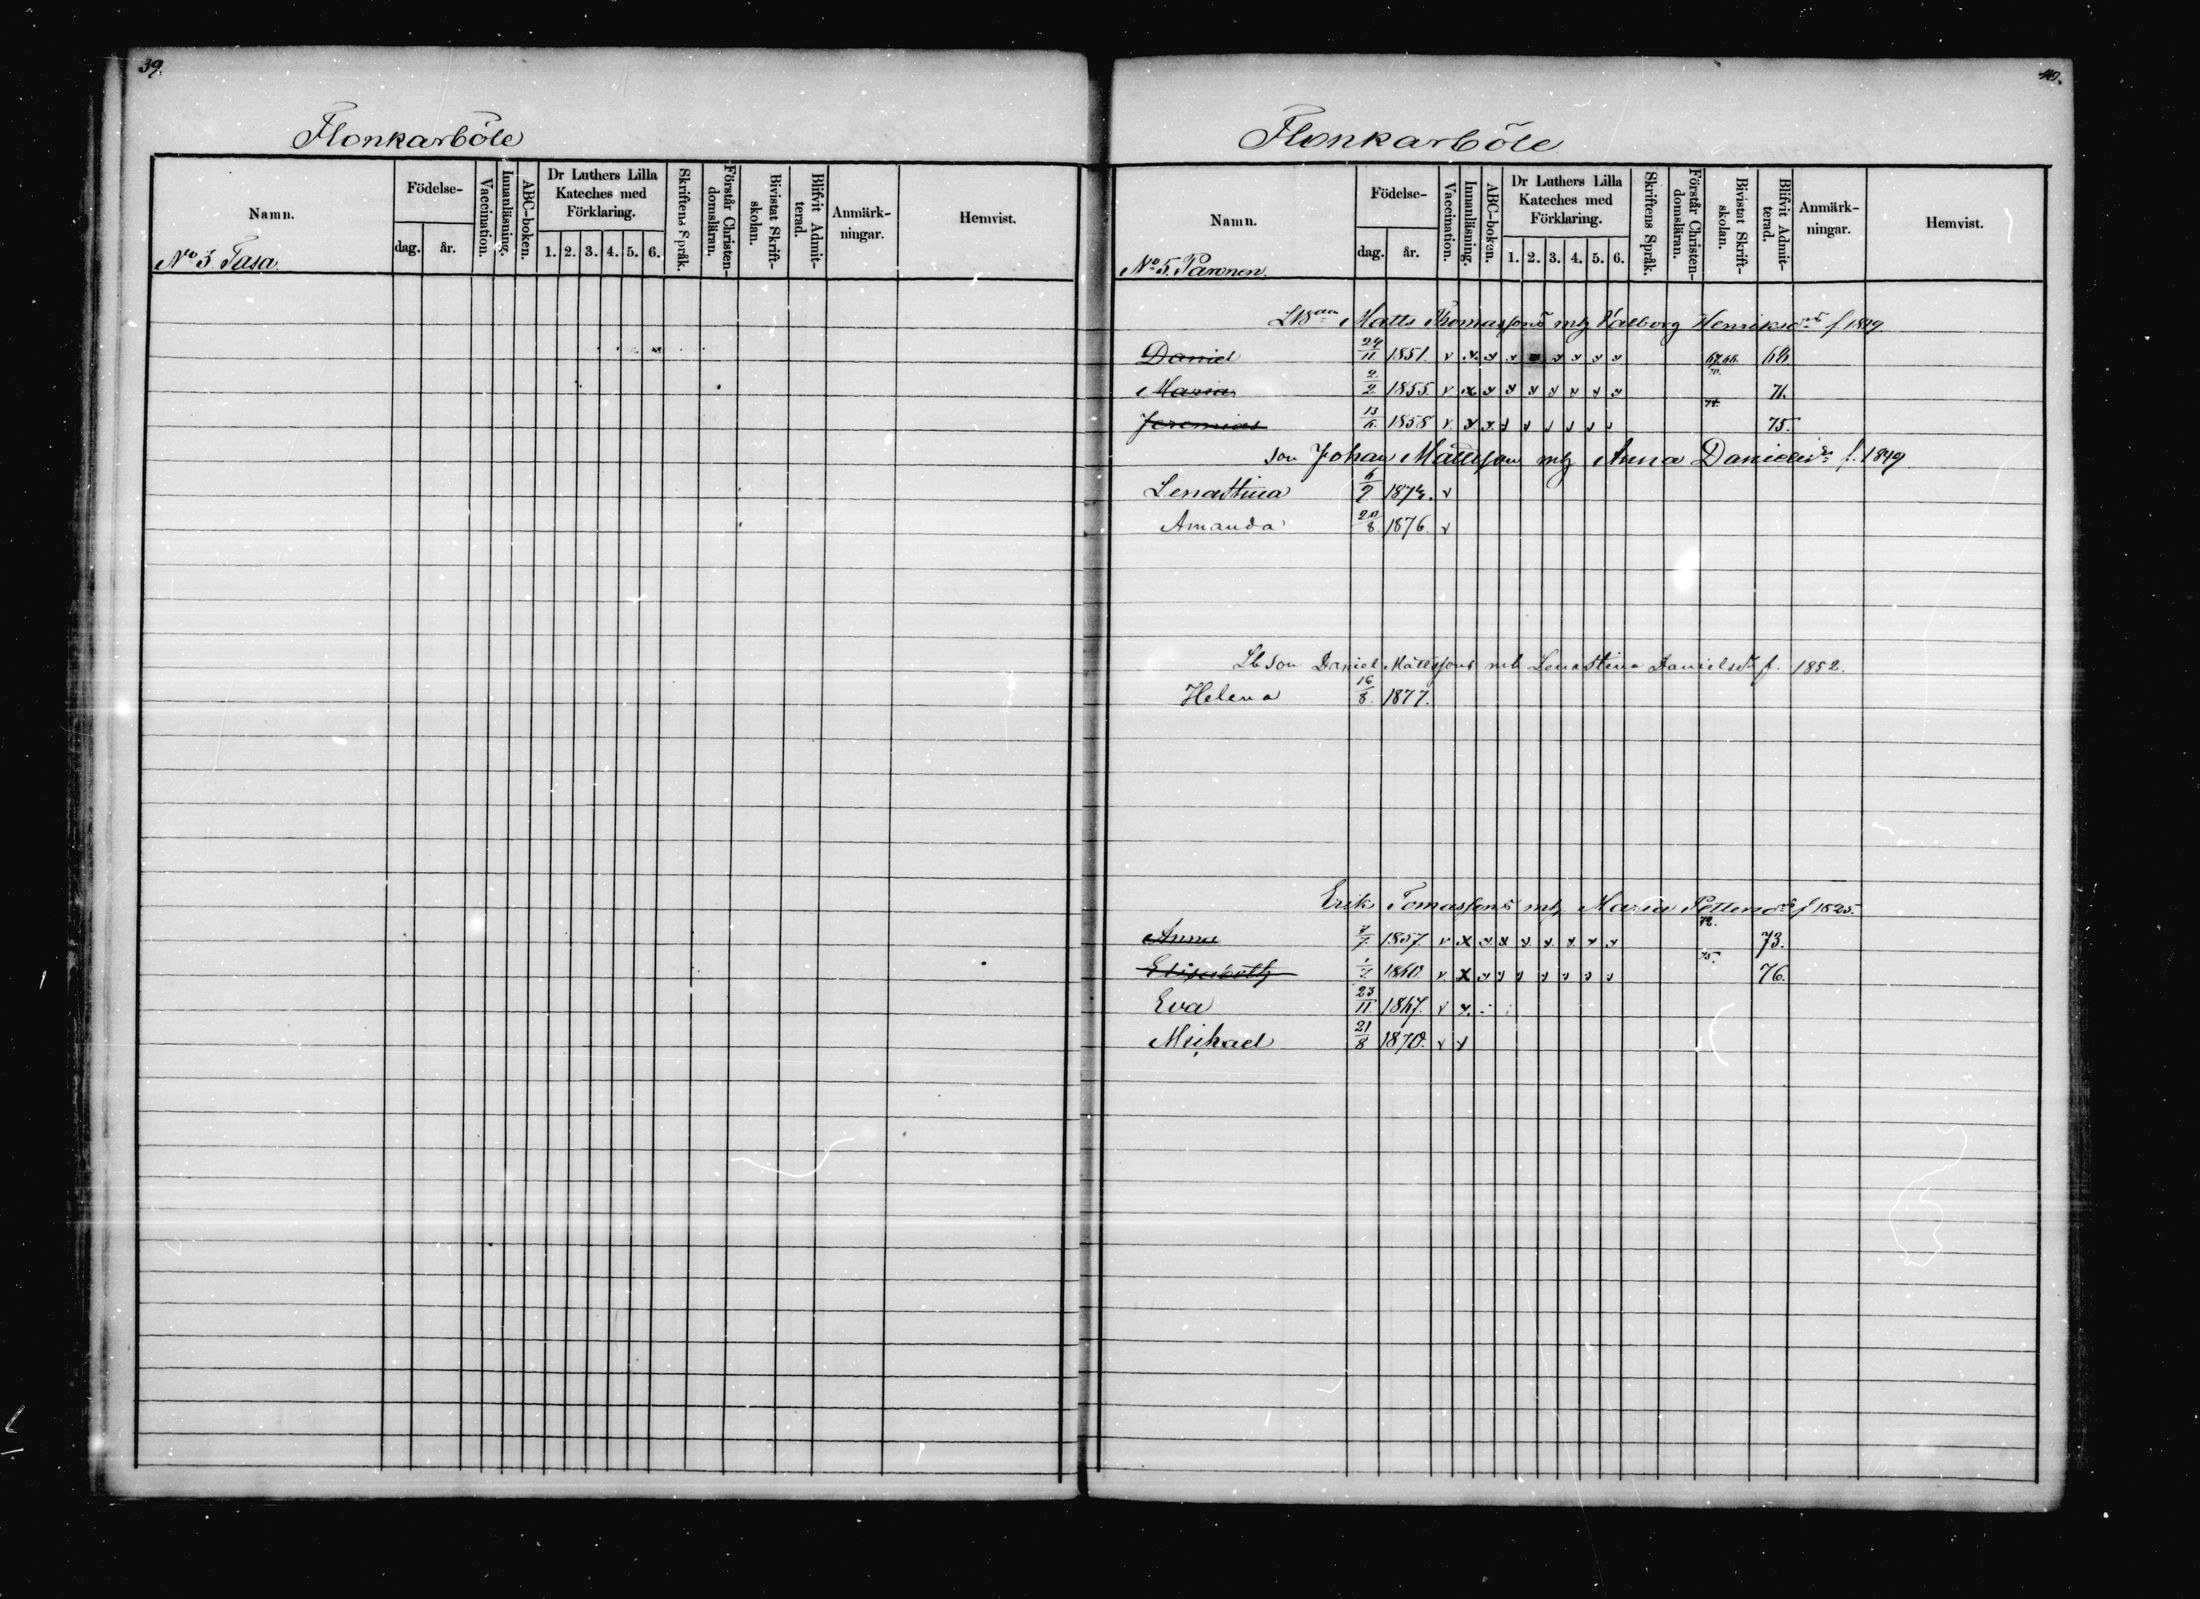 39.
Flonkarböle
Namn.
Födelse-
dag.
år.
Vaccination.
Innanläsning.
ABC-boken.
Dr Luthers Lilla Kateches med Förklaring.
1. 2. 3. 4. 5. 6.
Skriftens Språk.
Förstår Christen-domsläran.
Bivistat Skrift-skolan.
Blifvit Admit-terad.
Anmärk-ningar.
Hemvist.
No 3. Tasa
40.
Flonkarböle
Namn.
Födelse-
dag.
år.
Vaccination.
Innanläsning.
ABC-boken.
Dr Luthers Lilla Kateches med Förklaring.
1. 2. 3. 4. 5. 6.
Skriftens Språk.
Förstår Christen-domsläran.
Bivistat Skrift-skolan.
Blifvit Admit-terad.
Anmärk-ningar.
Hemvist.
No 5. Paronen
Matts Thomassons Valborg f. 1819
Daniel 29/11 1851. v x v v v v v v 67.68. 68.
Maria 2/2 1855. v x v v v v v v v 70. 71.
Jeremias 1858 v. x v. v v v v v v 74. 75.
son Johan Mattsson Anna f. 1849
Lenastina v
Amanda 20/8 1876. v
Lb son Daniel Mattssons Lenastina f. 1852.
Helena 16/8. 1877.
Erik Tomassons Maria f 1825.
Anna 1857 v x v x v v. v v v 72. 73.
Elisabeth 1860. v x v v v v v v 75. 76.
Eva 23/11 1867. v v.
Michael 21/8 1870. v v